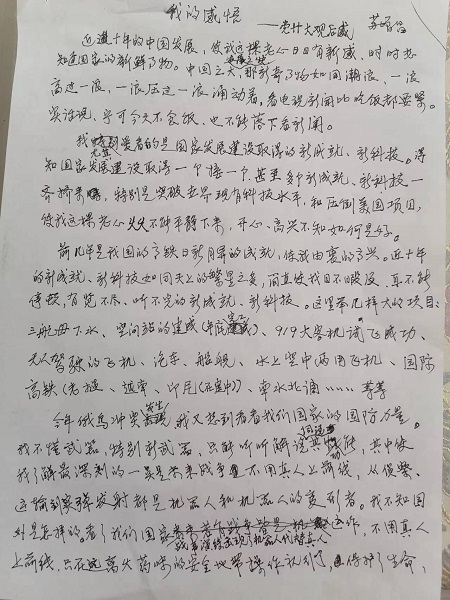 我的感悟
——党廿大观后感
近这十年的中国发展，使我这颗老心日日有新感，时时想
知道国家的新鲜事物。中国之大，那新奇事物如同潮浪，一浪
高过一浪，一浪压过一浪涌动着，看电视新闻比吃饭都要紧。
实话说，宁可今天不食饭，也不能落下看新闻。
我尤其爱看的是国家发展建设取得的新成就、新科技。得
知国家发展建设取得一个接一个甚至多个新成就、新科技一
齐挤来，特别是突破世界现有科技水平，和压倒美国项目，
使我这颗老心久久不能平静下来，开心、高兴不知如何是好。
前几年是我国的高铁日新月异的成就，使我由衷的高兴。近十年
的新成就、新科技如同天上的繁星之多，简直使我目不暇及，真不能
停顿，看览不尽、听不完的新成就、新科技。这里举几样大的项目：
三航母下水、空间站的建成、919大客机试飞成功、
无人驾驶的飞机、汽车、船舰、水上空中两用飞机、国际
高铁（老挝、越南、印尼（在建中）、南水北调……等等
今年俄乌冲突发生，我又想到看看我们国家的国防力量。
我不懂武器，特别新武器，只能听听解说其功能，其中使
我了解最深刻的一点是未来战争不用真人上前线，从侦察、
运输到弹发射都是机器人和机器人的变形者。我不知国
外是怎样的，看了我们国家运作，不用真人
上前线，只在远离火药味的安全地带操作就行了，保护了生命，